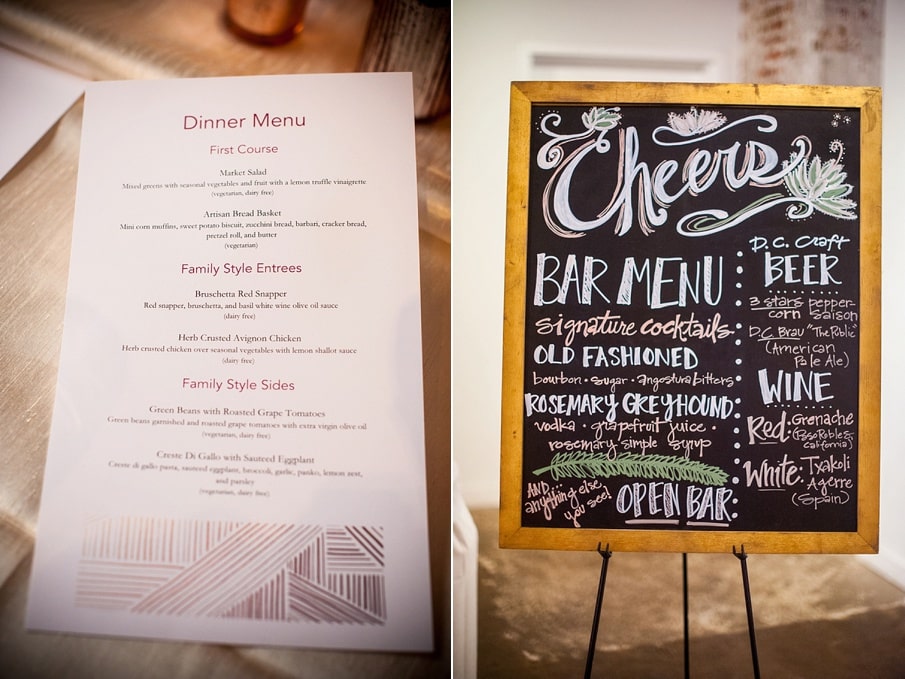 Dinner Menu
First Course
Market Salad
Mixed greens with seasonal vegetables and fruit with a lemon truffle vinaigrette
(vegetarian, dairy free)
Artisan Bread Basket
Mini corn muffins, sweet potato biscuit, zucchini bread, barbari, cracker bread,
pretzel roll, and butter
(vegetarian)
Family Style Entrees
Bruschetta Red Snapper
Red snapper, bruschetta, and basil white wine olive oil sauce
(dairy free)
Herb Crusted Avignon Chicken
Herb crusted chicken over seasonal vegetables with lemon shallot sauce
(dairy free)
Family Style Sides
Green Beans with Roasted Grape Tomatoes
Green beans garnished and roasted grape tomatoes with extra virgin olive oil
(vegetarian, dairy free)
Creste Di Gallo with Sauteed Eggplant
Creste di gallo pasta, sauteed eggplant, broccoli, garlic, panko, lemon zest,
and parsley
(vegetarian, dairy free)
Cheers
BAR MENU
signature cocktails
OLD FASHIONED
bourbon · sugar · angostura bitters
ROSEMARY GREYHOUND
vodka · grapefruit juice ·
rosemary simple syrup
AND
anything else
you see!
OPEN BAR
D.C. Craft
BEER
3 stars pepper-
corn saison
D.C. Brau "The Public"
(American
Pale Ale)
WINE
Red: Grenache
(Paso Robles,
California)
White: Txakoli
Agerre
(Spain)